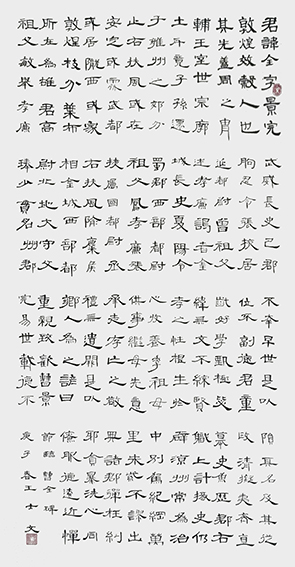 君諱全字景完
敦煌效穀人也
其先蓋周之冑
輔王室世宗廓
土斥竟子孫遷
于雍州之郊分
止右扶風或在
安定或處武都
或居隴西或家
敦煌枝分葉布
所在為雄君高
祖父敏舉孝廉
武威長史巴郡
朐忍令張掖居
延都尉曾祖父
述孝廉謁者金
城長史夏陽令
蜀郡西部都尉
祖父鳳孝廉張
掖屬國都尉丞
右扶風隃麋侯
相金城西部都
尉北地太守父
琫少貫名州郡
不幸早世是以
位不副德君童
齔好學甄極毖
緯無文不綜賢
孝之性根生於
心收養季祖母
供事繼母先意
承志存亡之敬
禮無遺闕是以
鄉人為之諺曰
重親致歡曹景
完易世載德不
隕其名及其從
政清擬夷齊直
慕史魚歷郡右
職上計掾史仍
辟涼州常為治
中別駕紀綱萬
里朱紫不謬出
典諸郡彈枉糾
邪貪暴洗心同
僚服德遠近憚
節臨曹全碑
庚子春王士文